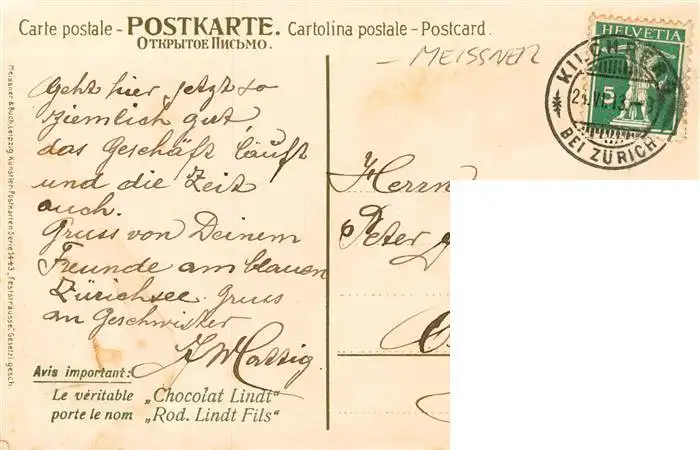 Carte postale - POSTKARTE. Cartolina postale - Postcard.
ОТКРЫТОЕ ПИСЬМО.
- MEISSNER
HELVETIA
5
KILCHBERG
VI.13.
BEI ZÜRICH
Meissner & Buch, Leipzig. Künstler-Postkarten Serie 1443. „Feststräusse.“ Gesetzl. gesch.
Geht hier jetzt so
ziemlich gut,
das Geschäft läuft
und die Zeit
auch.
Gruss von Deinem
Freunde am blauen
Zürichsee. Gruss
an Geschwister
Herrn
Peter
Avis important:
Le véritable „Chocolat Lindt“
porte le nom „Rod. Lindt Fils“